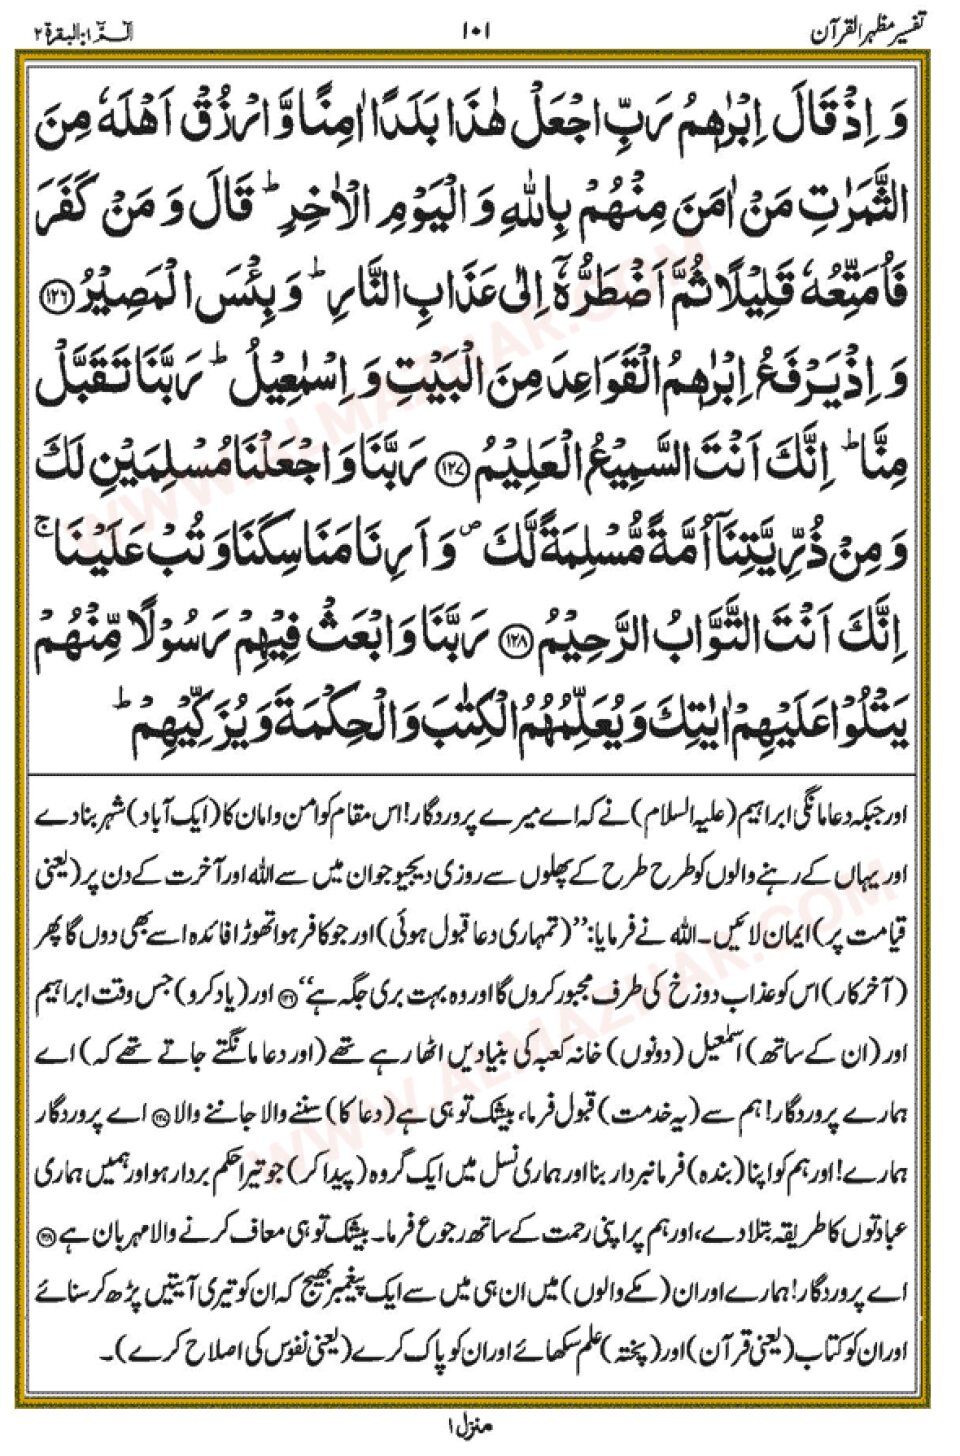 تفسیر مظہر القرآن
۱۰۱
الٓـمّٓ ۱: البقرۃ ۲
وَ اِذْ قَالَ اِبْرٰهٖمُ رَبِّ اجْعَلْ هٰذَا بَلَدًا اٰمِنًا وَّ ارْزُقْ اَهْلَهٗ مِنَ
الثَّمَرٰتِ مَنْ اٰمَنَ مِنْهُمْ بِاللّٰهِ وَ الْیَوْمِ الْاٰخِرِ ؕ قَالَ وَ مَنْ كَفَرَ
فَاُمَتِّعُهٗ قَلِیْلًا ثُمَّ اَضْطَرُّهٗۤ اِلٰى عَذَابِ النَّارِ ؕ وَ بِئْسَ الْمَصِیْرُ ﴿۱۲۶﴾
وَ اِذْ یَرْفَعُ اِبْرٰهٖمُ الْقَوَاعِدَ مِنَ الْبَیْتِ وَ اِسْمٰعِیْلُ ؕ رَبَّنَا تَقَبَّلْ
مِنَّا ؕ اِنَّكَ اَنْتَ السَّمِیْعُ الْعَلِیْمُ ﴿۱۲۷﴾ رَبَّنَا وَ اجْعَلْنَا مُسْلِمَیْنِ لَكَ
وَ مِنْ ذُرِّیَّتِنَاۤ اُمَّةً مُّسْلِمَةً لَّكَ ۪ وَ اَرِنَا مَنَاسِكَنَا وَ تُبْ عَلَیْنَا ۚ
اِنَّكَ اَنْتَ التَّوَّابُ الرَّحِیْمُ ﴿۱۲۸﴾ رَبَّنَا وَ ابْعَثْ فِیْهِمْ رَسُوْلًا مِّنْهُمْ
یَتْلُوْا عَلَیْهِمْ اٰیٰتِكَ وَ یُعَلِّمُهُمُ الْكِتٰبَ وَ الْحِكْمَةَ وَ یُزَكِّیْهِمْ ؕ
اور جبکہ دعا مانگی ابراہیم (علیہ السلام) نے کہ اے میرے پروردگار! اس مقام کو امن و امان کا (ایک آباد) شہر بنا دے
اور یہاں کے رہنے والوں کو طرح طرح کے پھلوں سے روزی دیجیو جو ان میں سے اللہ اور آخرت کے دن پر (یعنی
قیامت پر) ایمان لائیں۔ اللہ نے فرمایا: ’’(تمہاری دعا قبول ہوئی) اور جو کافر ہوا تھوڑا فائدہ اسے بھی دوں گا پھر
(آخر کار) اس کو عذاب دوزخ کی طرف مجبور کروں گا اور وہ بہت بری جگہ ہے‘‘ ﴿۱۲۶﴾ اور (یاد کرو) جس وقت ابراہیم
اور (ان کے ساتھ) اسمٰعیل (دونوں) خانہ کعبہ کی بنیادیں اٹھا رہے تھے (اور دعا مانگتے جاتے تھے کہ) اے
ہمارے پروردگار! ہم سے (یہ خدمت) قبول فرما، بیشک تو ہی ہے (دعا کا) سننے والا جاننے والا ﴿۱۲۷﴾ اے پروردگار
ہمارے! اور ہم کو اپنا (بندہ) فرمانبردار بنا اور ہماری نسل میں ایک گروہ (پیدا کر) جو تیرا حکم بردار ہو اور ہمیں ہماری
عبادتوں کا طریقہ بتلا دے، اور ہم پر اپنی رحمت کے ساتھ رجوع فرما۔ بیشک تو ہی معاف کرنے والا مہربان ہے ﴿۱۲۸﴾
اے پروردگار! ہمارے اور ان (مکے والوں) میں ان ہی میں سے ایک پیغمبر بھیج کہ ان کو تیری آیتیں پڑھ کر سنائے
اور ان کو کتاب (یعنی قرآن) اور (پختہ) علم سکھائے اور ان کو پاک کرے (یعنی نفوس کی اصلاح کرے)۔
منزل ۱
WWW.ALMAZHAR.COM
WWW.ALMAZHAR.COM